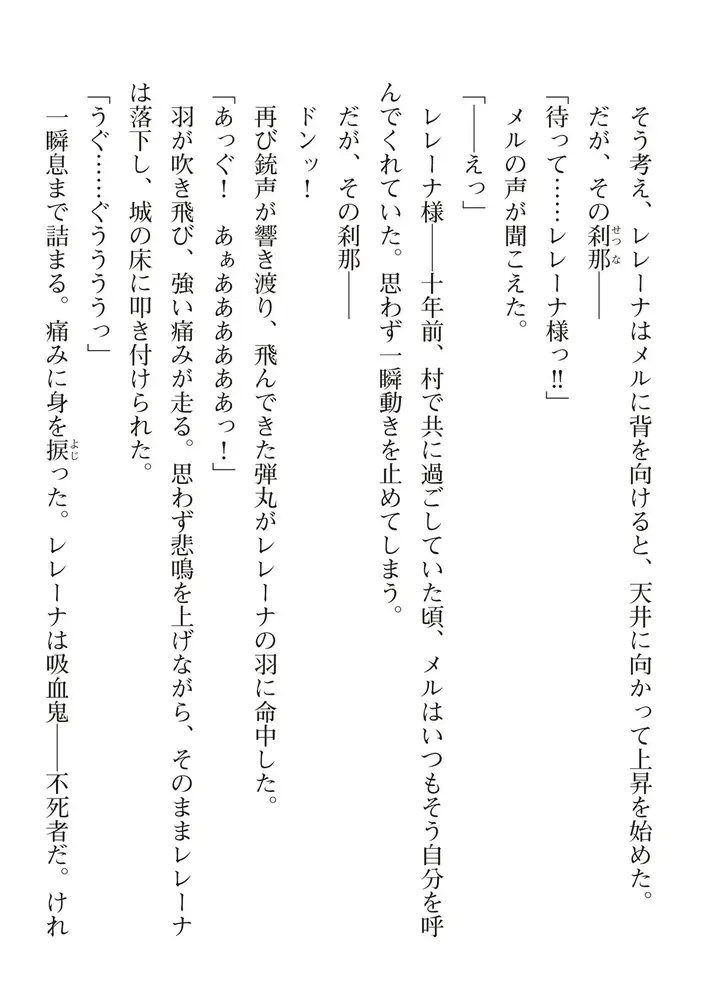 そう考え、レレーナはメルに背を向けると、天井に向かって上昇を始めた。
だが、その刹那――
「待って……レレーナ様っ‼」
メルの声が聞こえた。
「――えっ」
レレーナ様――十年前、村で共に過ごしていた頃、メルはいつもそう自分を呼
んでくれていた。思わず一瞬動きを止めてしまう。
だが、その刹那――
ドンッ！
再び銃声が響き渡り、飛んできた弾丸がレレーナの羽に命中した。
「あっぐ！　あぁああああああっ！」
羽が吹き飛び、強い痛みが走る。思わず悲鳴を上げながら、そのままレレーナ
は落下し、城の床に叩き付けられた。
「うぐ……ぐうううっ」
一瞬息まで詰まる。痛みに身を捩った。レレーナは吸血鬼――不死者だ。けれ